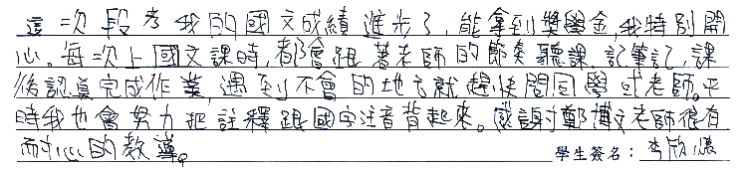 這次段考我的國文成績進步了,能拿到獎學金,我特別開
心。每次上國文課時,都會跟著老師的節奏聽課、記筆記,課
後認真完成作業,遇到不會的地方就趕快問同學或老師。平
時我也會努力把註釋跟國字注音背起來。感謝鄭博文老師很有
耐心的教導。
學生簽名:李欣